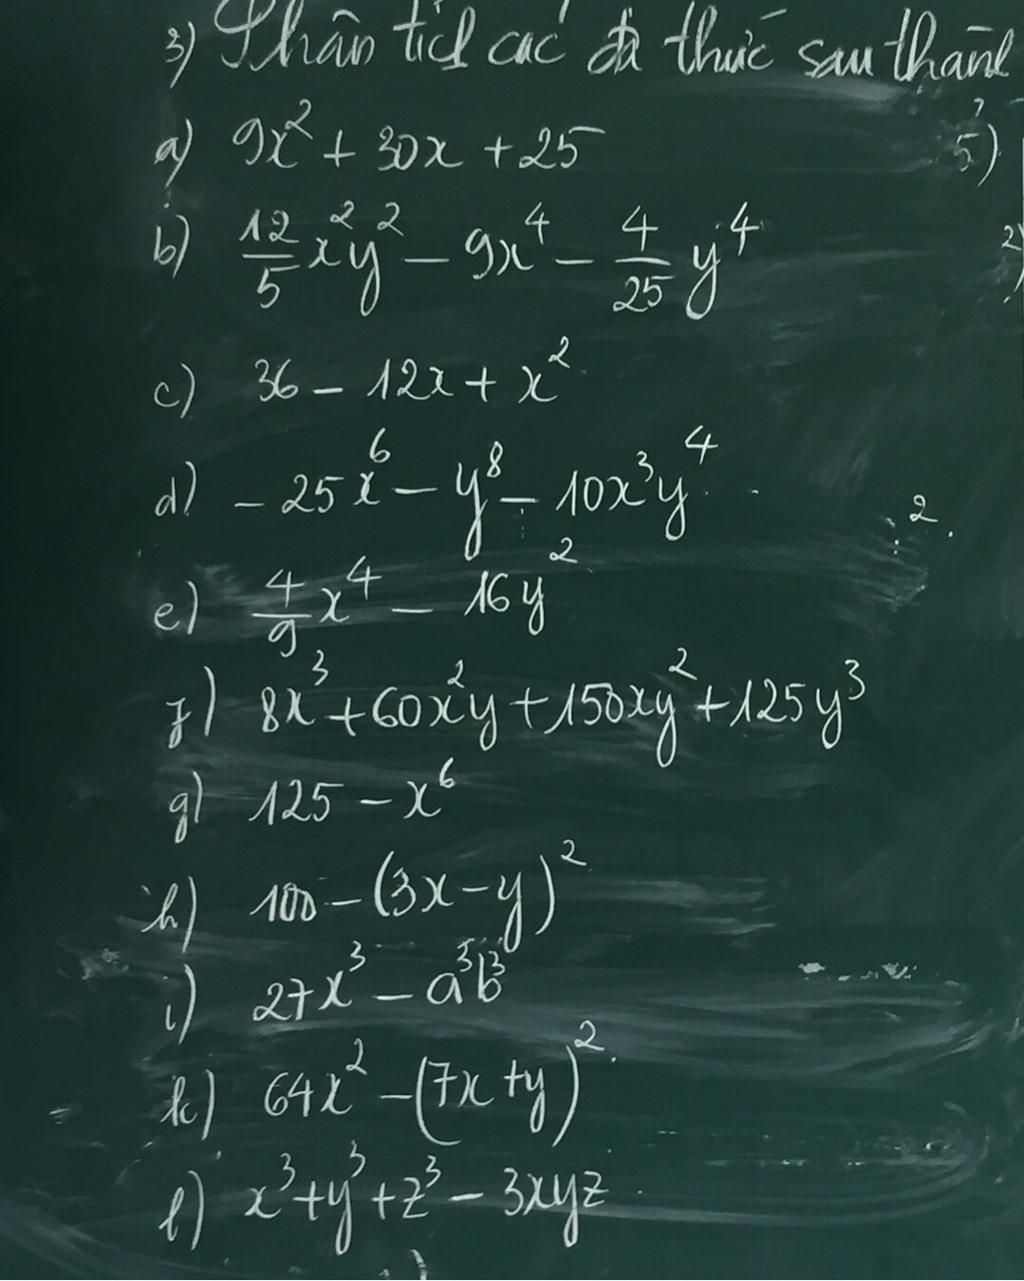 3) Phân tích các đa thức sau thành
a) 9x² + 30x + 25
5)
b) 12/5 x²y² - 9x⁴ - 4/25 y⁴
2)
c) 36 - 12x + x²
d) - 25x⁶ - y⁸ - 10x³y⁴
2
e) 4/9 x⁴ - 16y²
f) 8x³ + 60x²y + 150xy² + 125y³
g) 125 - x⁶
h) 100 - (3x - y)²
i) 27x³ - a³b³
k) 64x² - (7x + y)²
l) x³ + y³ + z³ - 3xyz